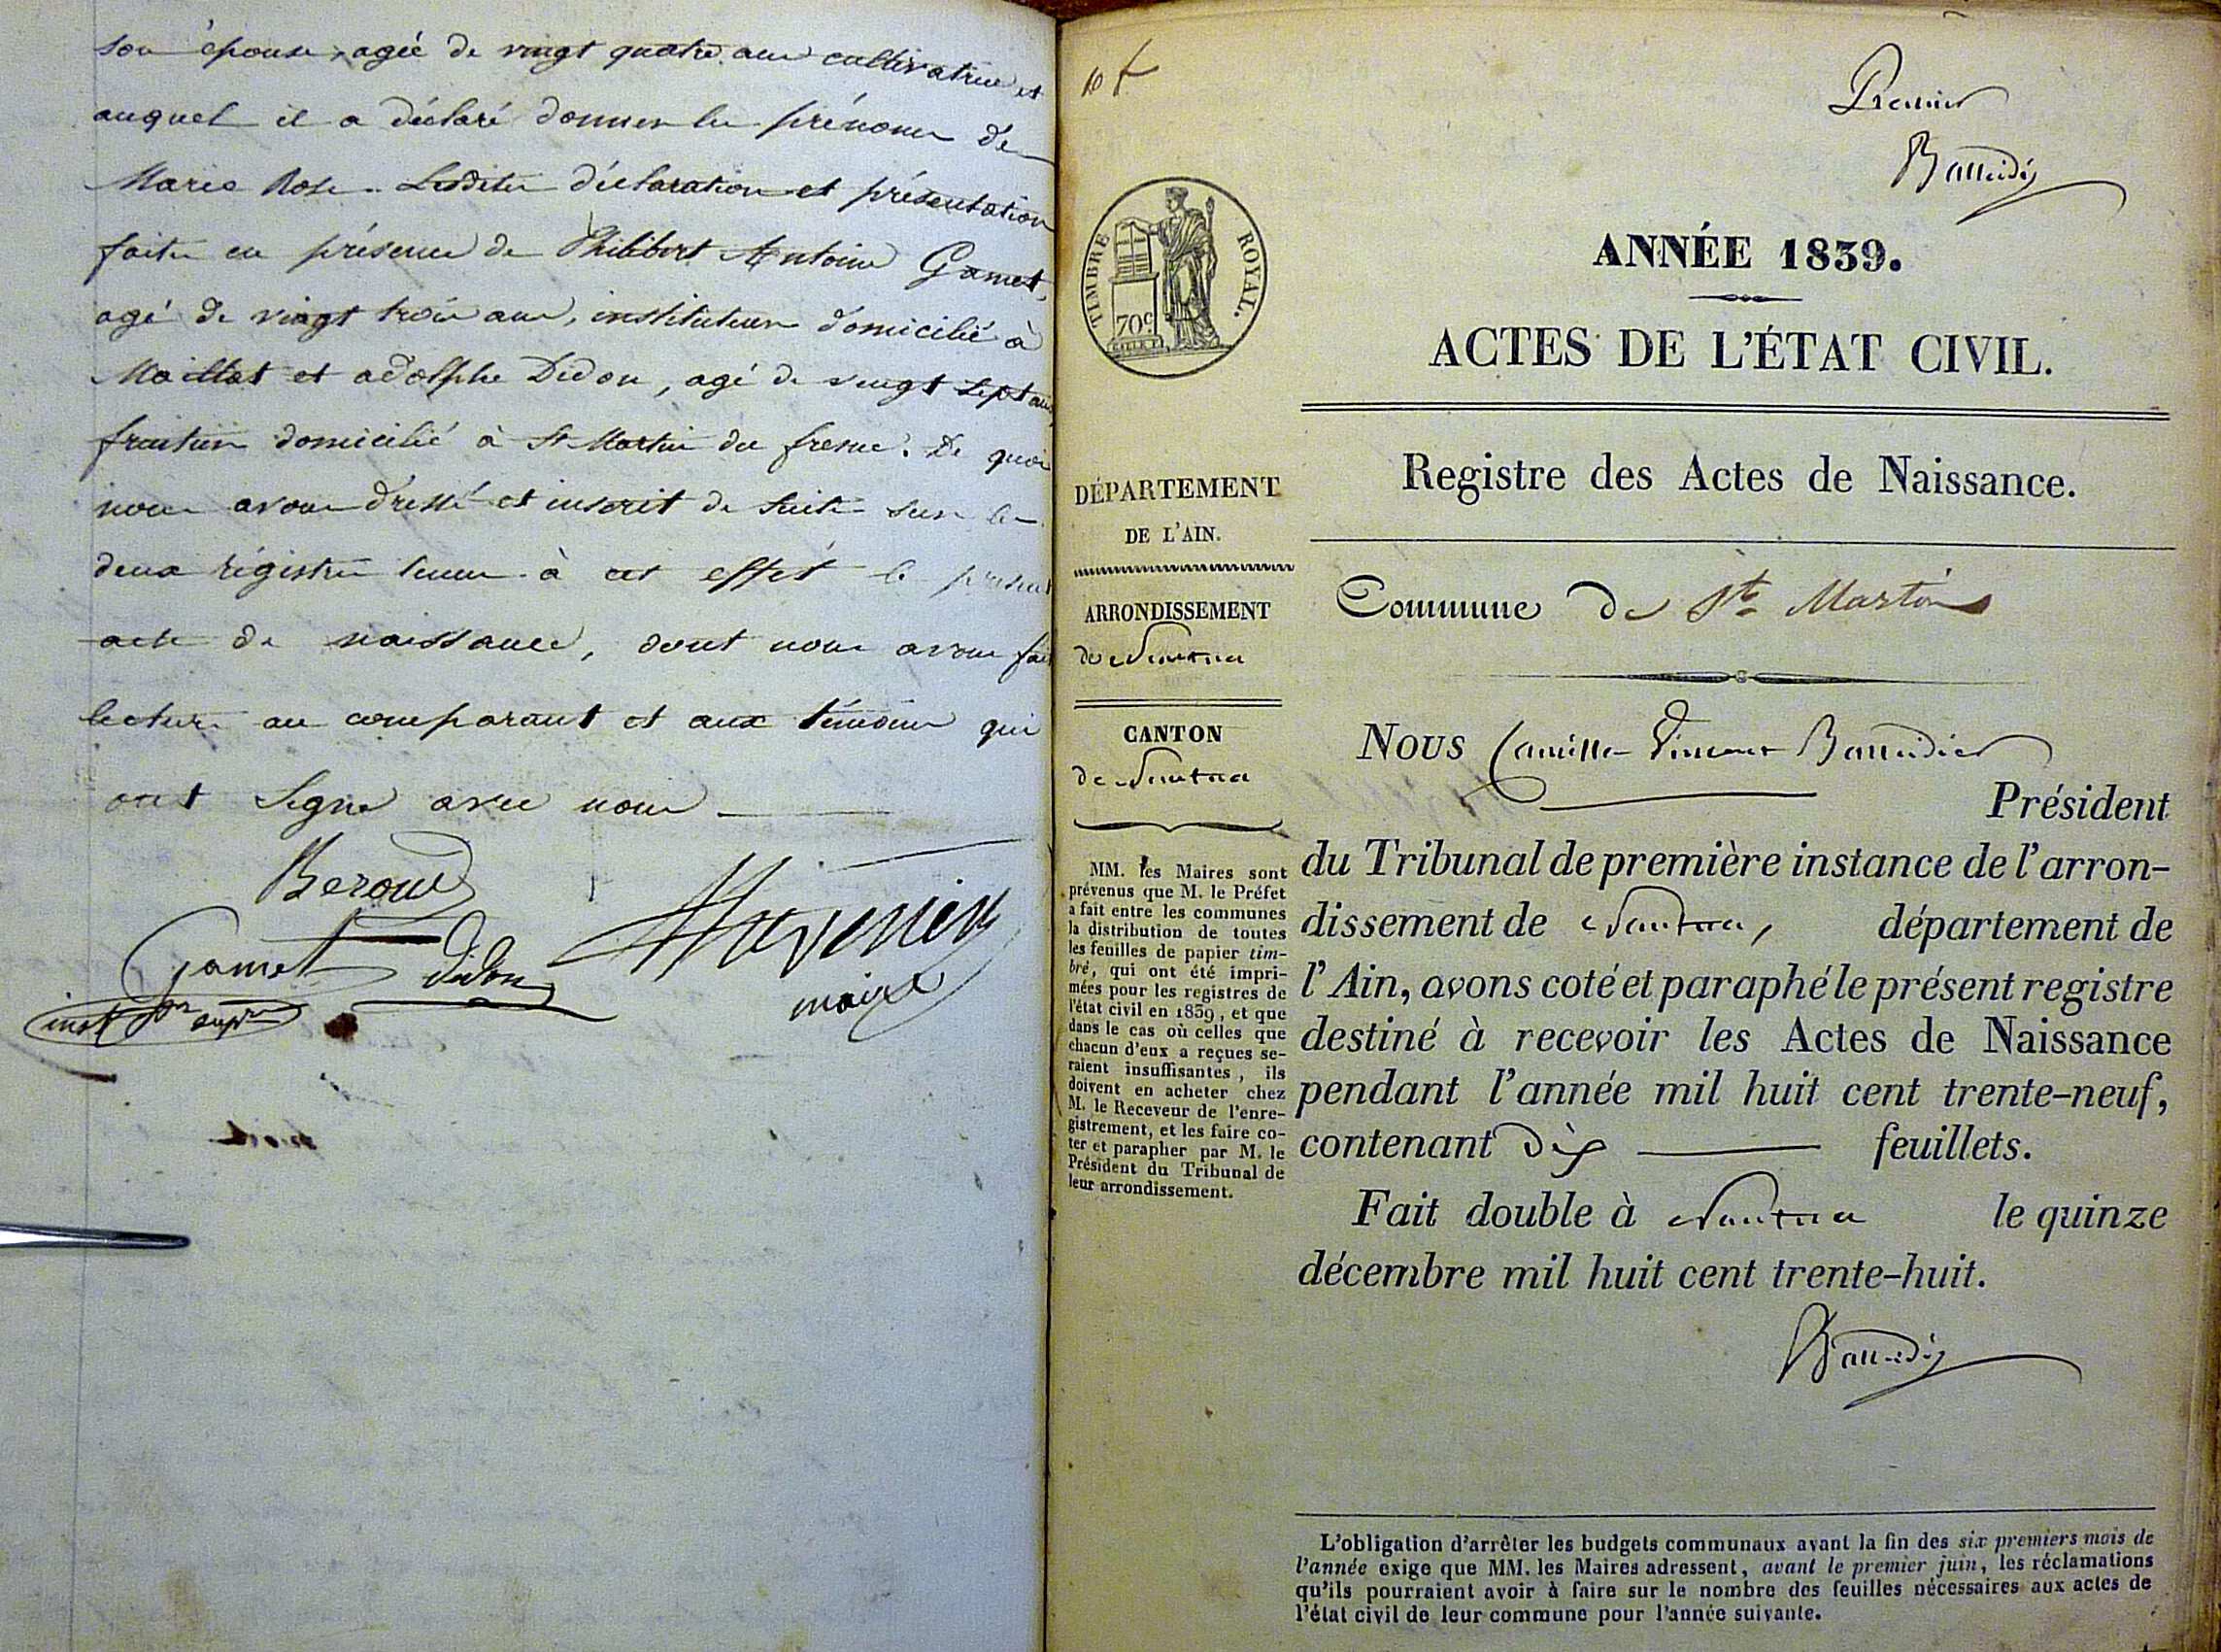 son épouse, agée de vingt quatre ans cultivatrice et
auquel il a déclaré donner les prénoms de
Marie Rose. Lesdites déclaration et présentation
faites en présence de Philibert Antoine Gamet,
agé de vingt trois ans, instituteur domicilié à
Maillat et adolphe Didon, agé de vingt sept ans
fruitier domicilié à St Martin du fresne. De quoi
nous avons dressé et inscrit de suite sur les
deux régistres tenus à cet effet le présent
acte de naissance, dont nous avons fait
lecture au comparant et aux témoins qui
ont signé avec nous
Beroud
Gamet Didon
maire
10 f
Premier
TIMBRE ROYAL.
70c
ANNÉE 1839.
ACTES DE L'ÉTAT CIVIL.
Registre des Actes de Naissance.
DÉPARTEMENT
DE L'AIN.
ARRONDISSEMENT
de Nantua
CANTON
de Nantua
MM. les Maires sont
prévenus que M. le Préfet
a fait entre les communes
la distribution de toutes
les feuilles de papier tim-
bré, qui ont été impri-
mées pour les registres de
l'état civil en 1839, et que
dans le cas où celles que
chacun d'eux a reçues se-
raient insuffisantes, ils
doivent en acheter chez
M. le Receveur de l'enre-
gistrement, et les faire co-
ter et parapher par M. le
Président du Tribunal de
leur arrondissement.
Commune de St Martin
Nous Camille Vincent
Président
du Tribunal de première instance de l'arron-
dissement de Nantua, département de
l'Ain, avons coté et paraphé le présent registre
destiné à recevoir les Actes de Naissance
pendant l'année mil huit cent trente-neuf,
contenant dix feuillets.
Fait double à Nantua le quinze
décembre mil huit cent trente-huit.
L'obligation d'arrêter les budgets communaux avant la fin des six premiers mois de
l'année exige que MM. les Maires adressent, avant le premier juin, les réclamations
qu'ils pourraient avoir à faire sur le nombre des feuilles nécessaires aux actes de
l'état civil de leur commune pour l'année suivante.